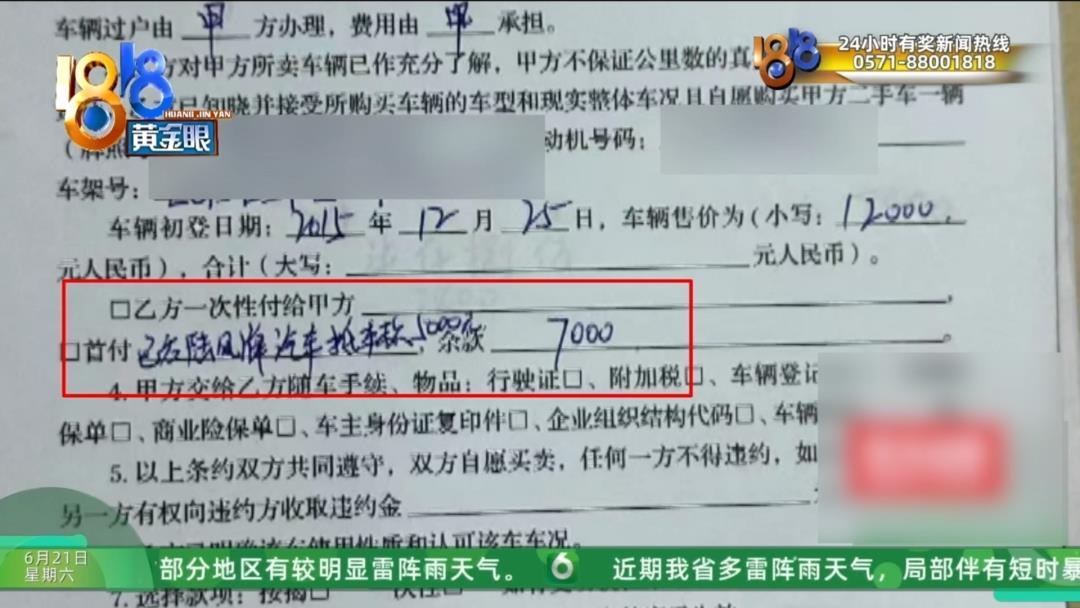 车辆过户由 甲 方办理，费用由 甲 承担。
方对甲方所卖车辆已作充分了解，甲方不保证公里数的真
已知晓并接受所购买车辆的车型和现实整体车况且自愿购买甲方二手车一辆
动机号码：
车架号：
车辆初登日期：2015 年 12 月 25 日，车辆售价为（小写：12000
元人民币），合计（大写： 元人民币）。
□乙方一次性付给甲方 ，
□首付 乙方陆风牌汽车抵车款5000元，余款 7000 。
4. 甲方交给乙方随车手续、物品：行驶证□、附加税□、车辆登记
保单□、商业险保单□、车主身份证复印件□、企业组织结构代码□、车辆
5. 以上条约双方共同遵守，双方自愿买卖，任何一方不得违约，如
另一方有权向违约方收取违约金
该车使用性质和认可该车车况。
7. 选择款项：按揭□
1818
HUANG JIN YAN
黄金眼
1818
24小时有奖新闻热线
0571-88001818
6月21日
星期六
部分地区有较明显雷阵雨天气。 6 近期我省多雷阵雨天气，局部伴有短时暴